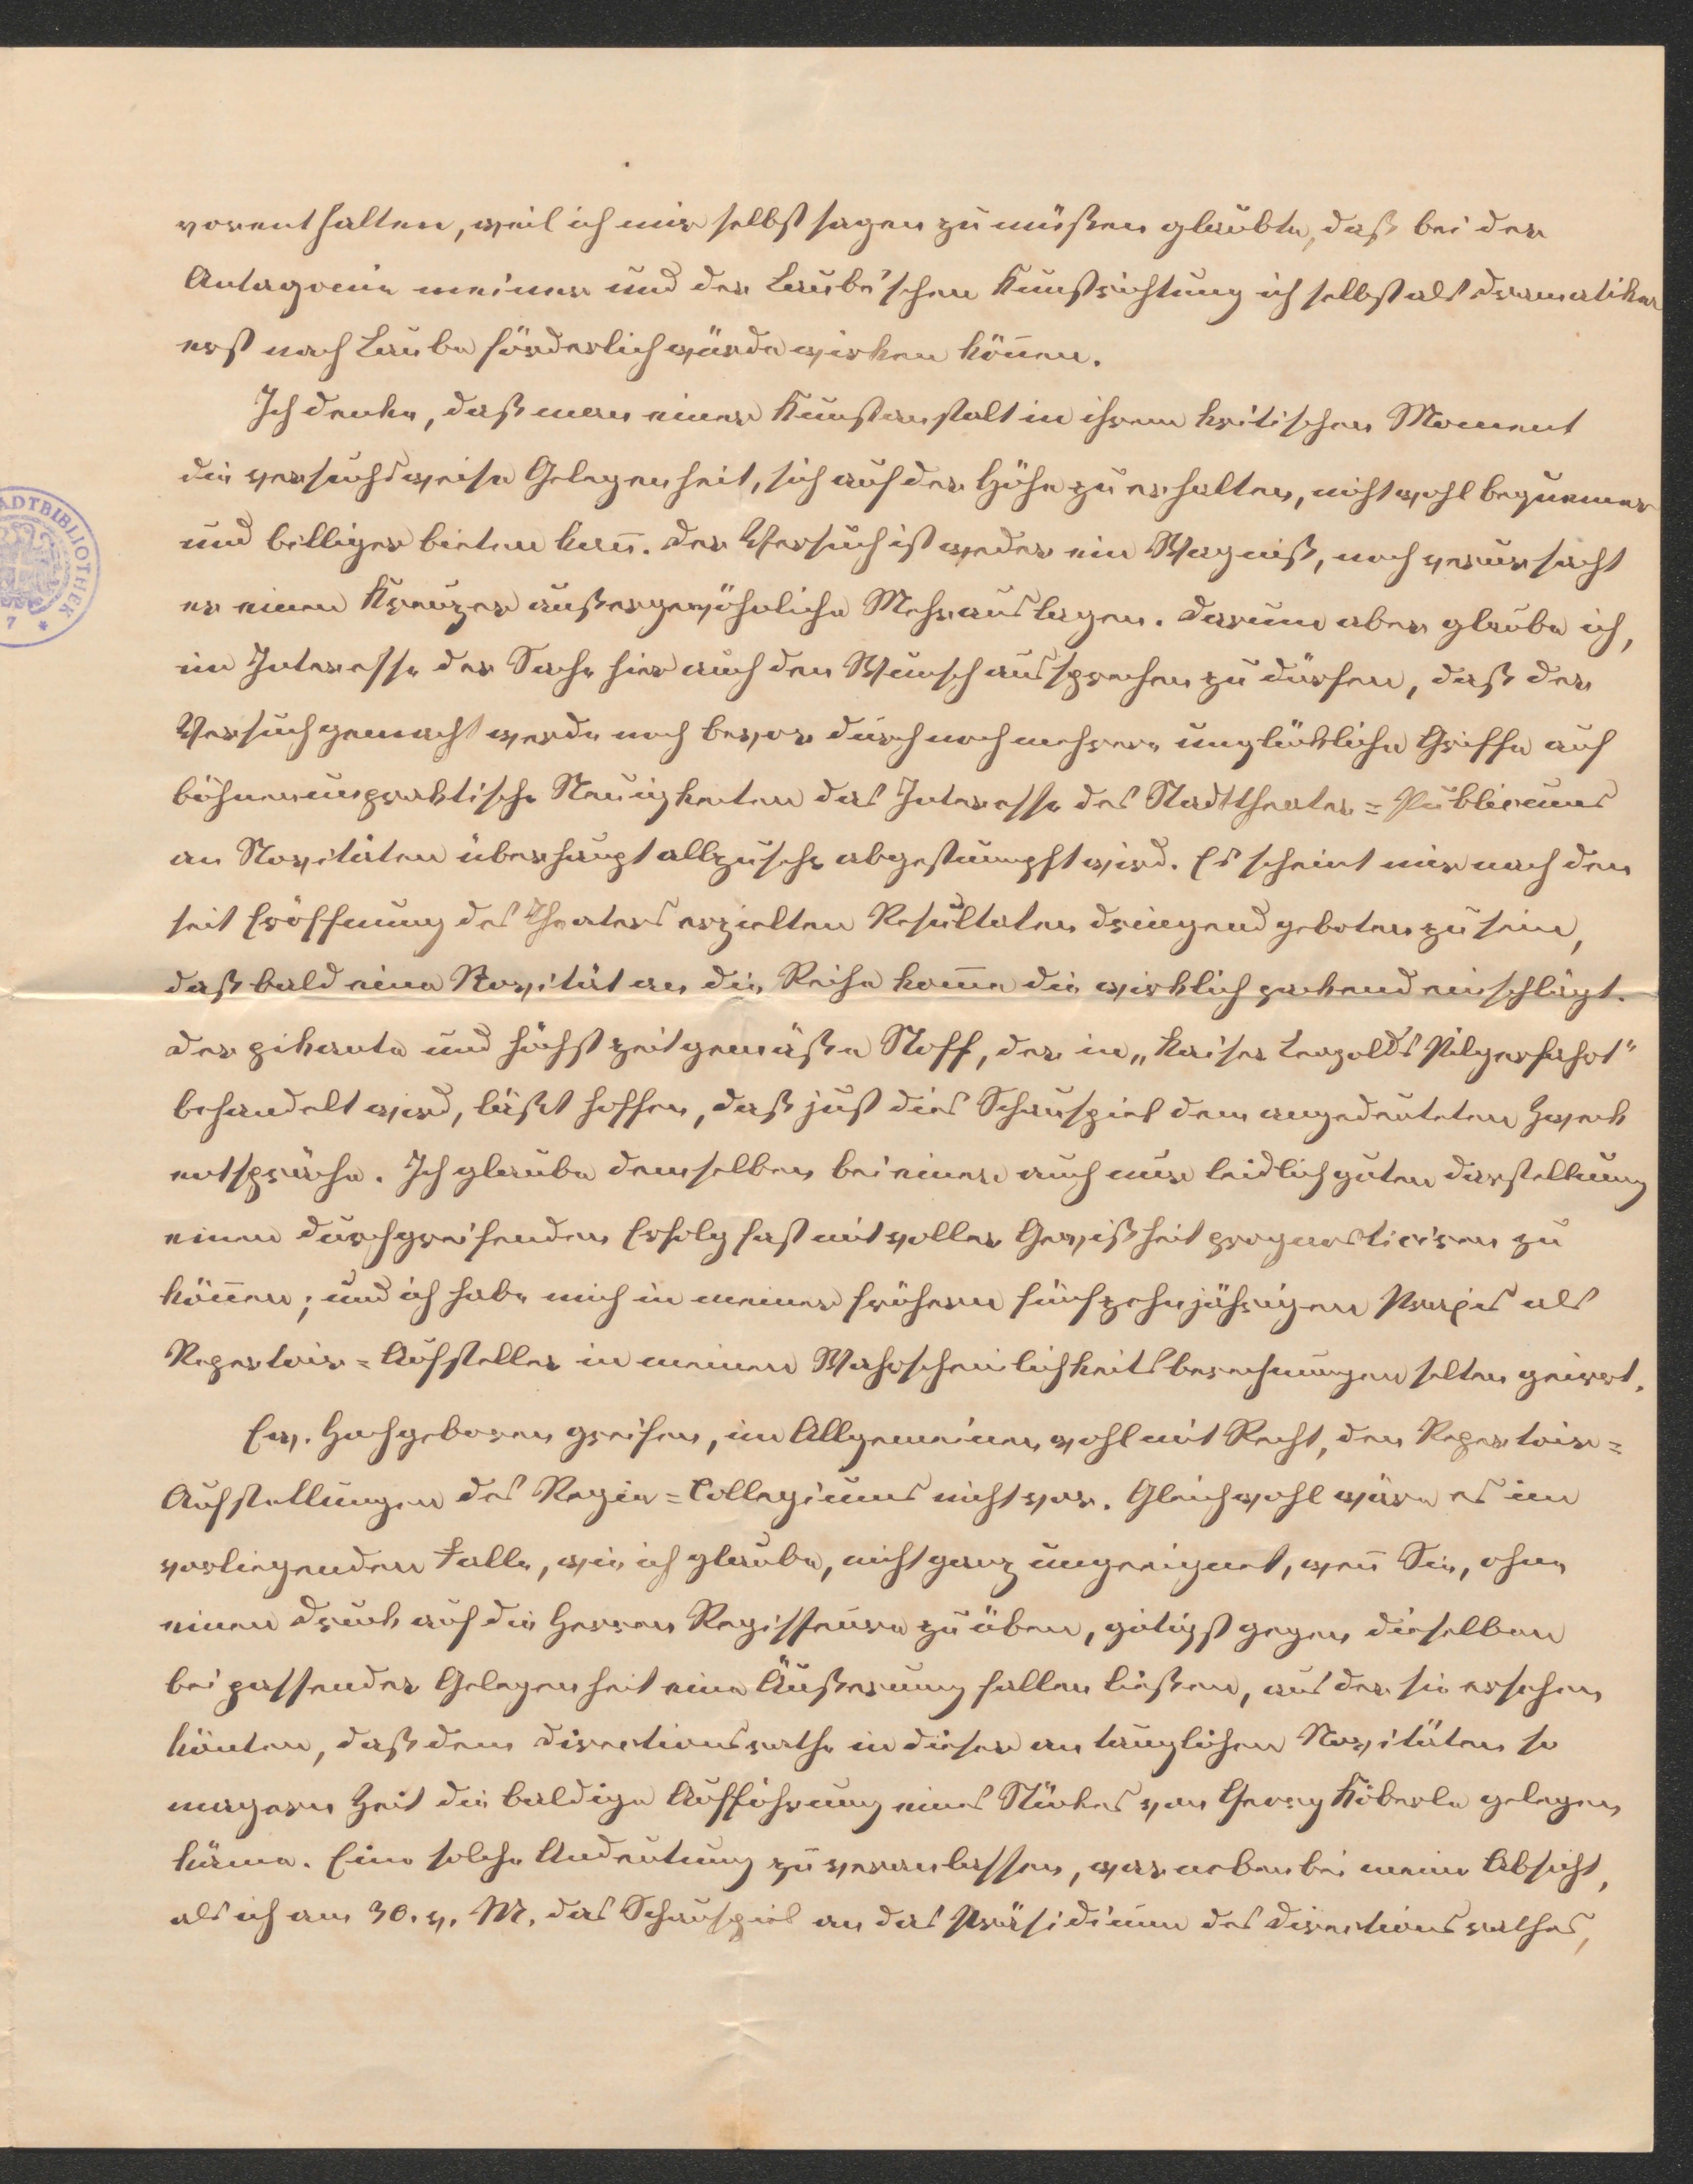 vorenthalten, weil ich mir selbst sagen zu müßen glaubte, daß bei der
Antagonie meiner und der Laube'schen Kunstrichtung ich selbst als Dramatiker
erst nach Laube förderlich würde wirken können.
Ich denke, daß man einer Kunstanstalt in ihrem kritischen Moment
die versuchsweise Gelegenheit, sich auf der Höhe zu erhalten, nicht wohl bequemer
und billiger bieten kan̄. Der Versuch ist weder ein Wagniß, noch verursacht
er einen Kreuzer außergewöhnliche Mehrauslagen. Darum aber glaube ich,
im Interesse der Sache hier auch den Wunsch aussprechen zu dürfen, daß der
Versuch gemacht werde noch bevor durch noch mehrere unglückliche Griffe auf
bühnenunpraktische Neuigkeiten das Interesse des Stadttheater=Publicums
an Novitäten überhaupt allzusehr abgestumpft wird. Es scheint mir nach den
seit Eröffnung des Theaters erzielten Resultaten dringend geboten zu sein,
daß bald eine Novität an die Reihe kom̄e die wirklich packend einschlägt.
Der pikante und höchst zeitgemäße Stoff, der in „Kaiser Leopold's Pilgerfahrt"
behandelt wird, läßt hoffen, daß just dies Schauspiel dem angedeuteten Zweck
entspräche. Ich glaube demselben bei einer auch nur leidlich guten Darstellung
einen durchgreifenden Erfolg fast mit voller Gewißheit prognosticiren zu
kön̄en; und ich habe mich in meiner frühern fünfzehnjährigen Praxis als
Repertoir=Aufsteller in meinen Wahrscheinlichkeitsberechnungen selten geirrt.
Ew. Hochgeboren greifen, im Allgemeinen wohl mit Recht, den Repertoir=
Aufstellungen des Regie=Collegiums nicht vor. Gleichwohl wäre es im
vorliegenden Falle, wie ich glaube, nicht ganz ungeeignet, wen̄ Sie, ohne
einen Druck auf die Herren Regisseure zu üben, gütigst gegen dieselben
bei passender Gelegenheit eine Äußerung fallen ließen, aus der sie ersehen
könten, daß dem Directionsrathe in dieser an tauglichen Novitäten so
magern Zeit die baldige Aufführung eines Stückes von Georg Köberle gelegen
käme. Eine solche Andeutung zu veranlassen, war nebenbei meine Absicht,
als ich am 30. v. M. das Schauspiel an das Präsidium des Directionsrathes,
STADTBIBLIOTHEK
7 *